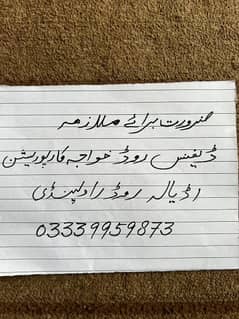 ضرورت برائے ملازمہ
ڈیفنس روڈ خواجہ کارپوریشن
اڈیالہ روڈ راولپنڈی
03339959873